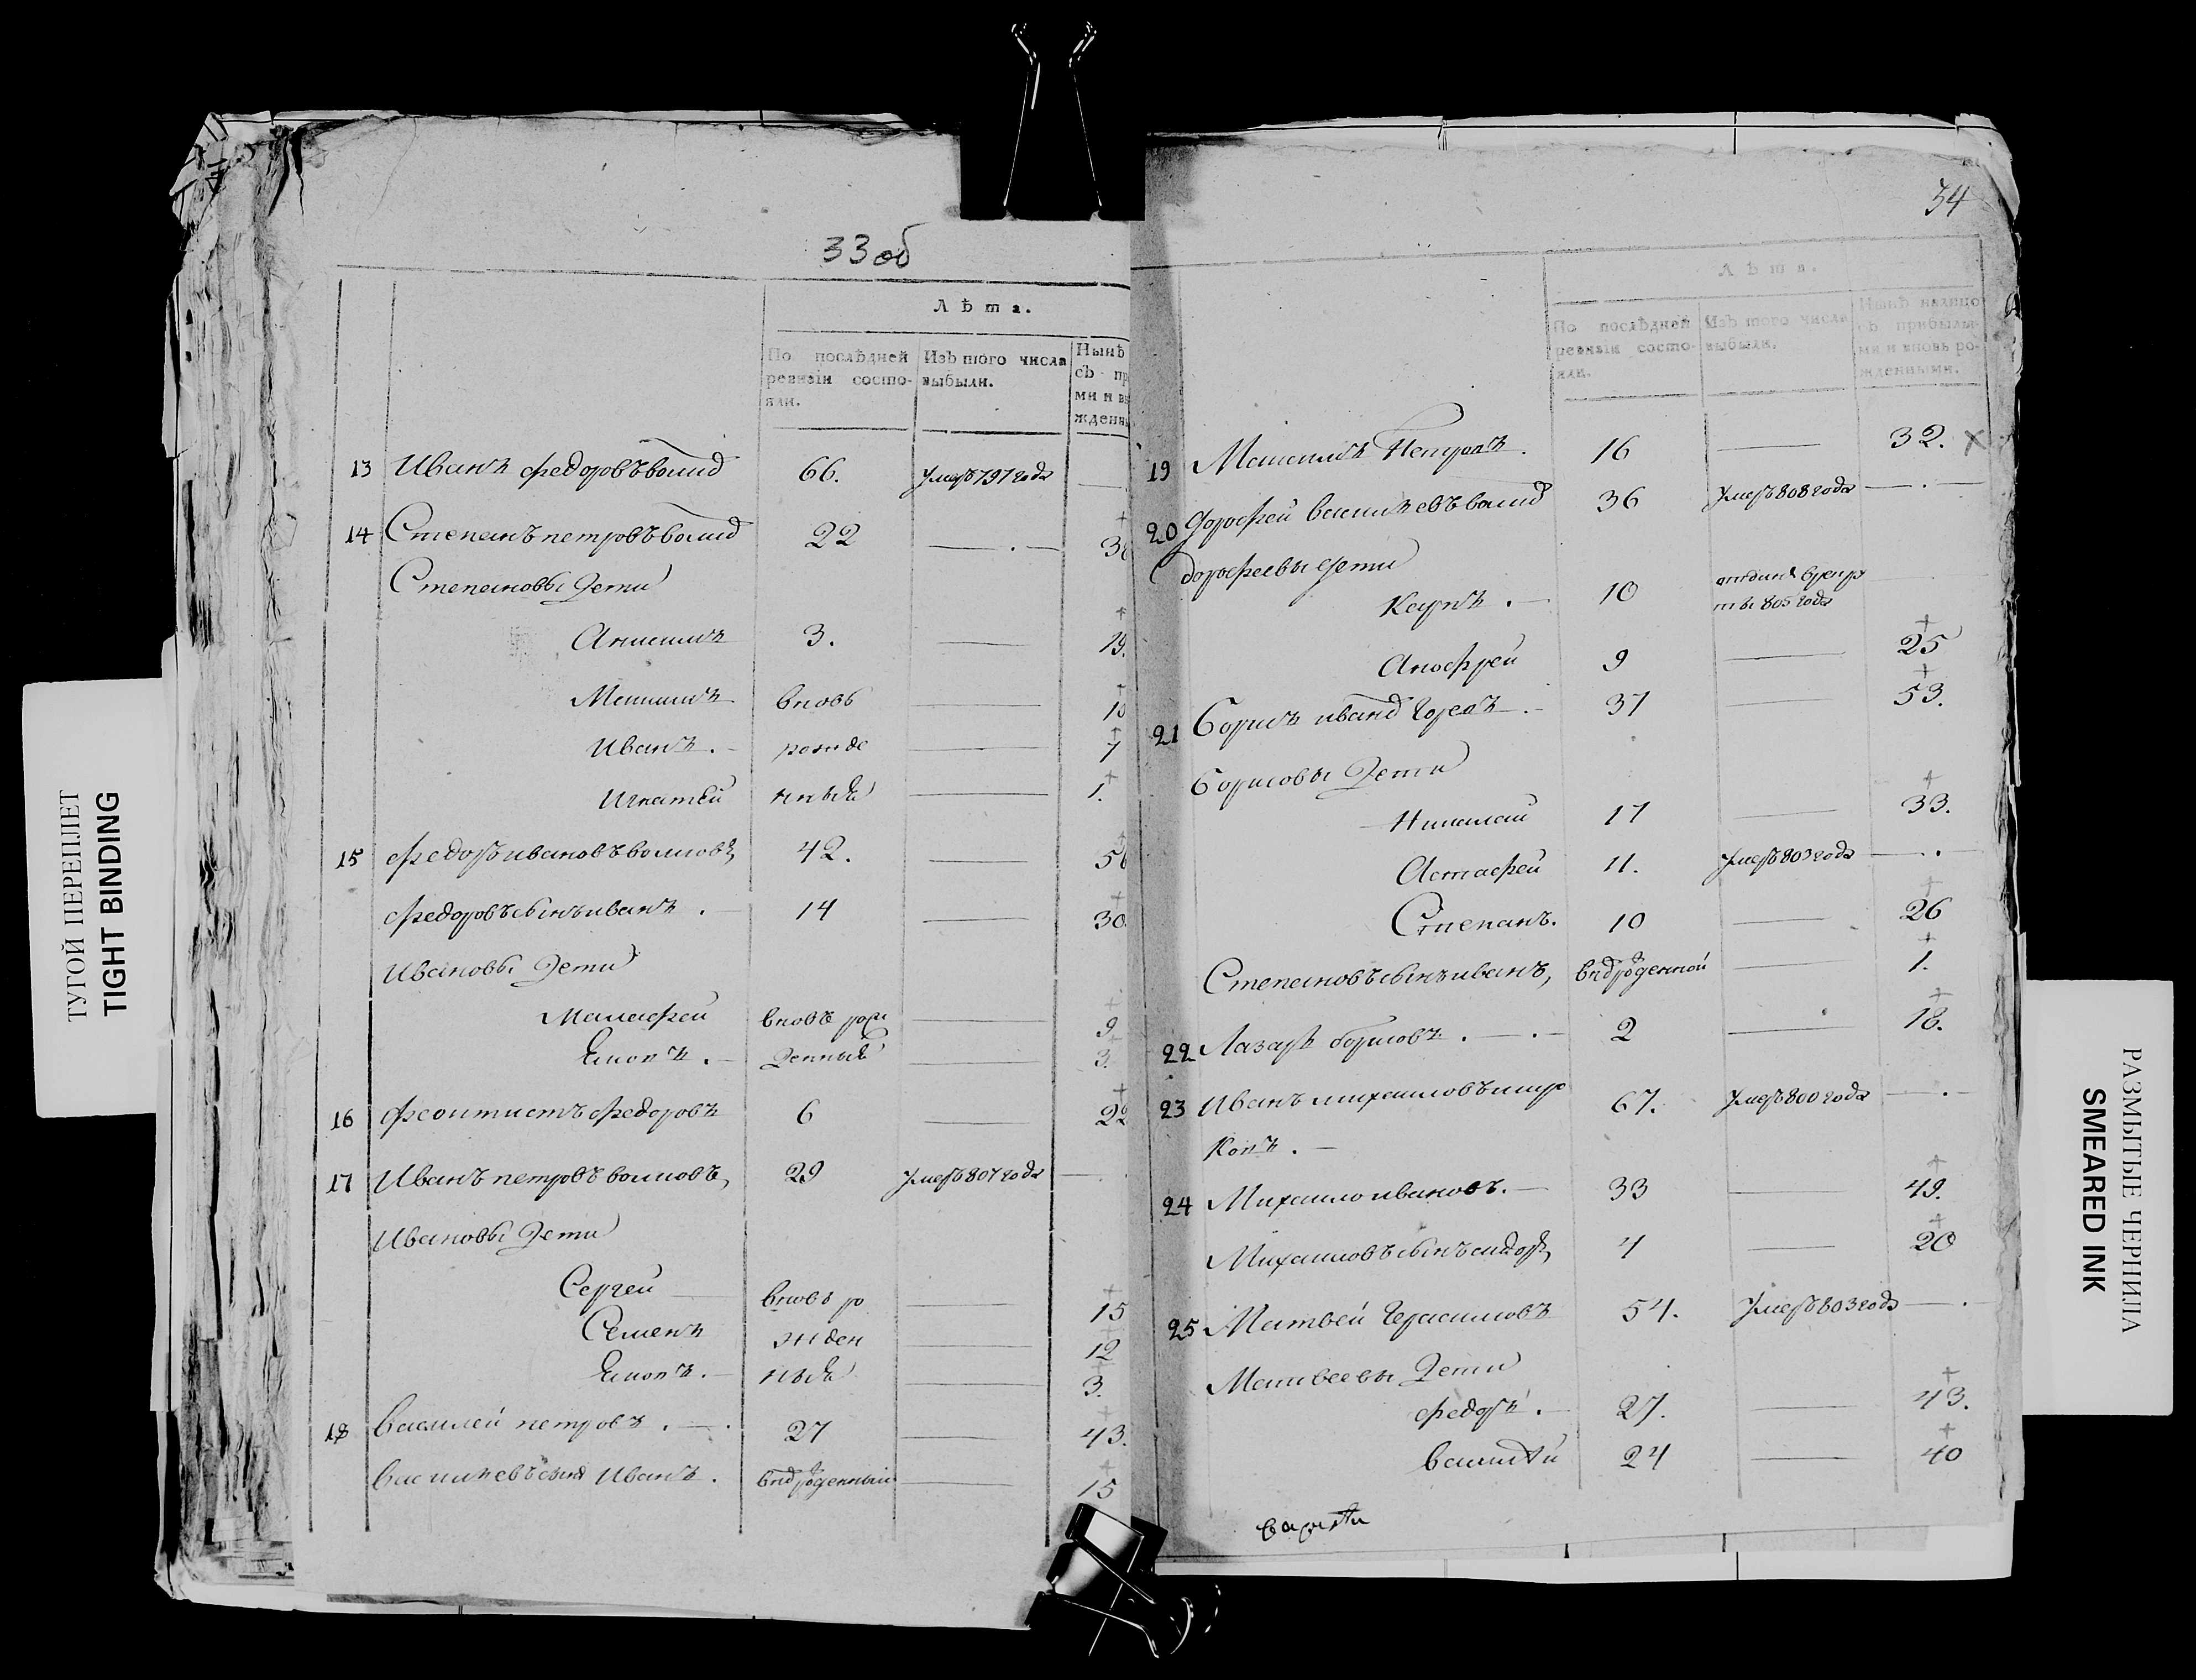 ТУГОЙ ПЕРЕПЛЕТ
TIGHT BINDING
33 об
Лѣта.
По послѣдней ревизіи состо-
яли.
Изъ того числа
выбыли.
Нынѣ
съ пр
ми и в
жденн
13 Иванъ федоровъ 66. умеръ 797 года —
14 Степанъ петровъ 22 — 3
Степановы дети
Анисимъ 3. — 19.
вновь — 10
Иванъ. рожде — 7
Игнатей нныя — 1.
15 федоръ ивановъ 42. — 5
федоровъ сынъ иванъ. 14 — 30.
Ивановы дети
вновь рож — 9
денныя — 3.
16 феоктистъ федоровъ 6 — 22
17 Иванъ петровъ 29 умеръ 807 года —
Ивановы дети
Сергей вновь ро — 15
Семенъ жден — 12
ныя — 3.
18 василей петровъ. 27 — 43.
васильевъ сынъ Иванъ. вновь рожденный — 15
34
Лѣта.
По послѣдней
ревизіи состо-
яли.
Изъ того числа
выбыли.
Нынѣ налицо
съ прибылы-
ми и вновь ро-
жденными.
19 Петровъ. 16 — 32. ×
20 Дорофей васильевъ 36 умеръ 808 года —
дорофеевы дети
Карпъ. 10 отданъ врекру
ты 805 года
Анофрей 9 — 25
21 Борисъ 37 — 53.
борисовы дети
Николай 17 — 33.
Астафей 11. умеръ 803 года —
Степанъ. 10 — 26
Степановъ сынъ иванъ, вновь рожденной — 1.
22 Лазарь борисовъ. 2 — 18.
23 Иванъ михаиловъ шир 67. умеръ 800 года —
ковъ.
24 Михаило ивановъ. 33 — 49.
Михаиловъ сынъ сидоръ, 4 — 20
25 Матвей Герасимовъ 54. умеръ 803 года —
Матвеевы дети
федоръ. 27. — 43.
василей 24 — 40
РАЗМЫТЫЕ ЧЕРНИЛА
SMEARED INK